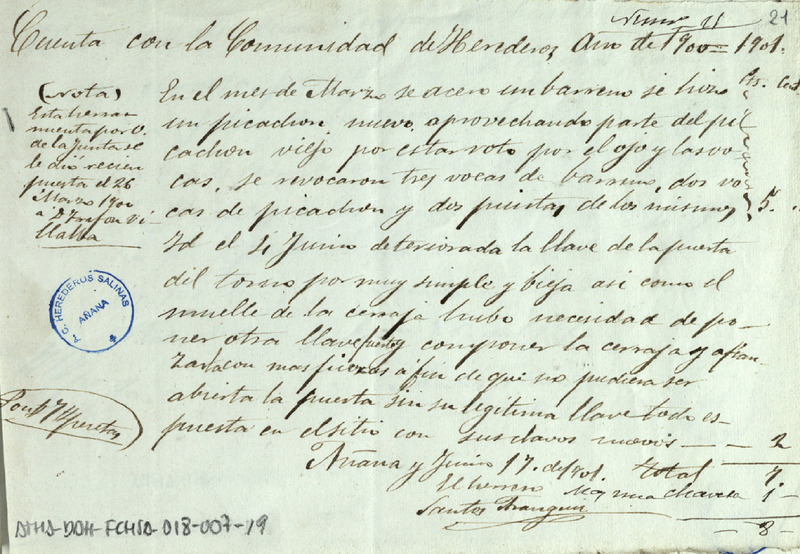 Num 11
21
Cuenta con la Comunidad de Herederos Año de 1900 = 1901.
(Nota)
Esta herra
mienta por O.
de la Junta se
le dió recien
puesta el 26
Marzo 1901
a D
Villalba
Pts. Cts
En el mes de Marzo se acero un barreno se hizo
un picachon nuevo aprovechando parte del pi
cachon viejo por estar roto por el ojo y las vo
cas, se revocaron tres vocas de barreno, dos vo
cas de picachon y dos puntas de los mismos 5.
Id el 4 Junio deteriorada la llave de la puerta
del torno por muy simple y bieja asi como el
muelle de la cerraja hubo necesidad de po-
ner otra llave fuerte y componer la cerraja y afian
zarla con mas fuerzas a fin de que no pudiera ser
abierta la puerta sin su legitima llave todo es-
puesta en el sitio con sus clavos nuevos — — 2
Añana y Junio 17. de 1901. total 7
El herrero
mas una chaveta 1
Santos Aranguiz
8
T. C. HEREDEROS SALINAS
AÑANA
ATHA-DAH-FCHSA-018-007-19